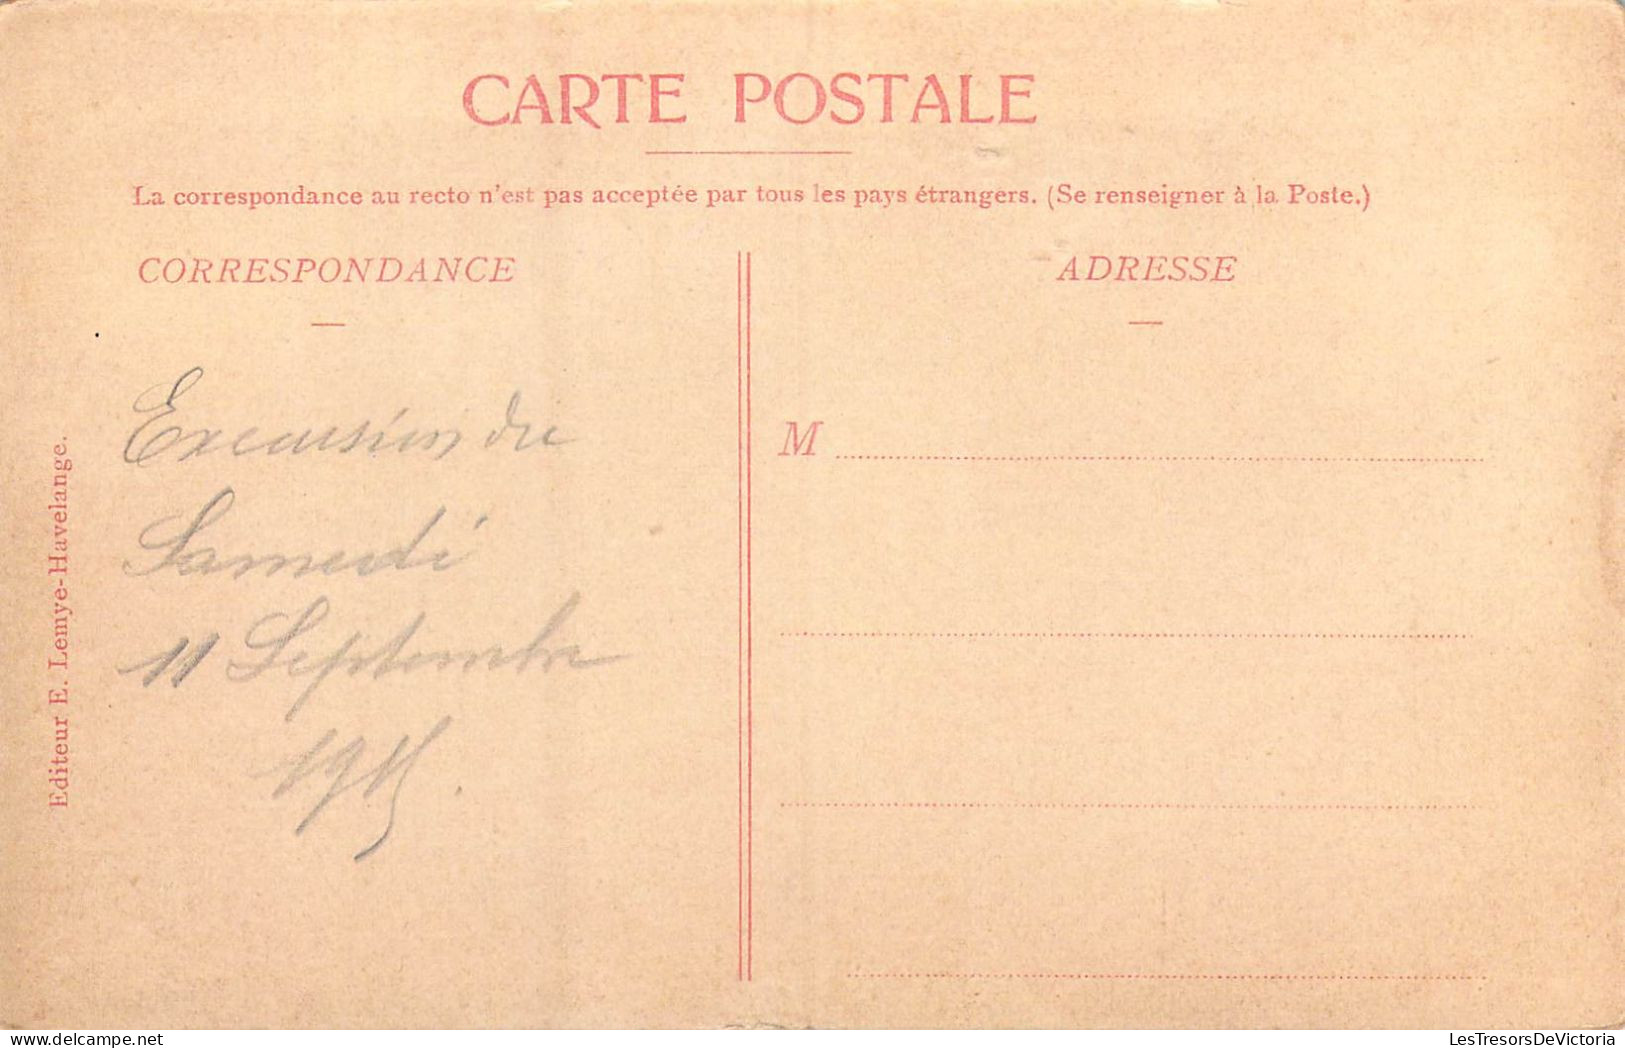 CARTE POSTALE
La correspondance au recto n'est pas acceptée par tous les pays étrangers. (Se renseigner à la Poste.)
CORRESPONDANCE
ADRESSE
Excursion du
Samedi
11 Septembre
1915.
M
Editeur E. Lemye-Havelange.
LesTresorsDeVictoria